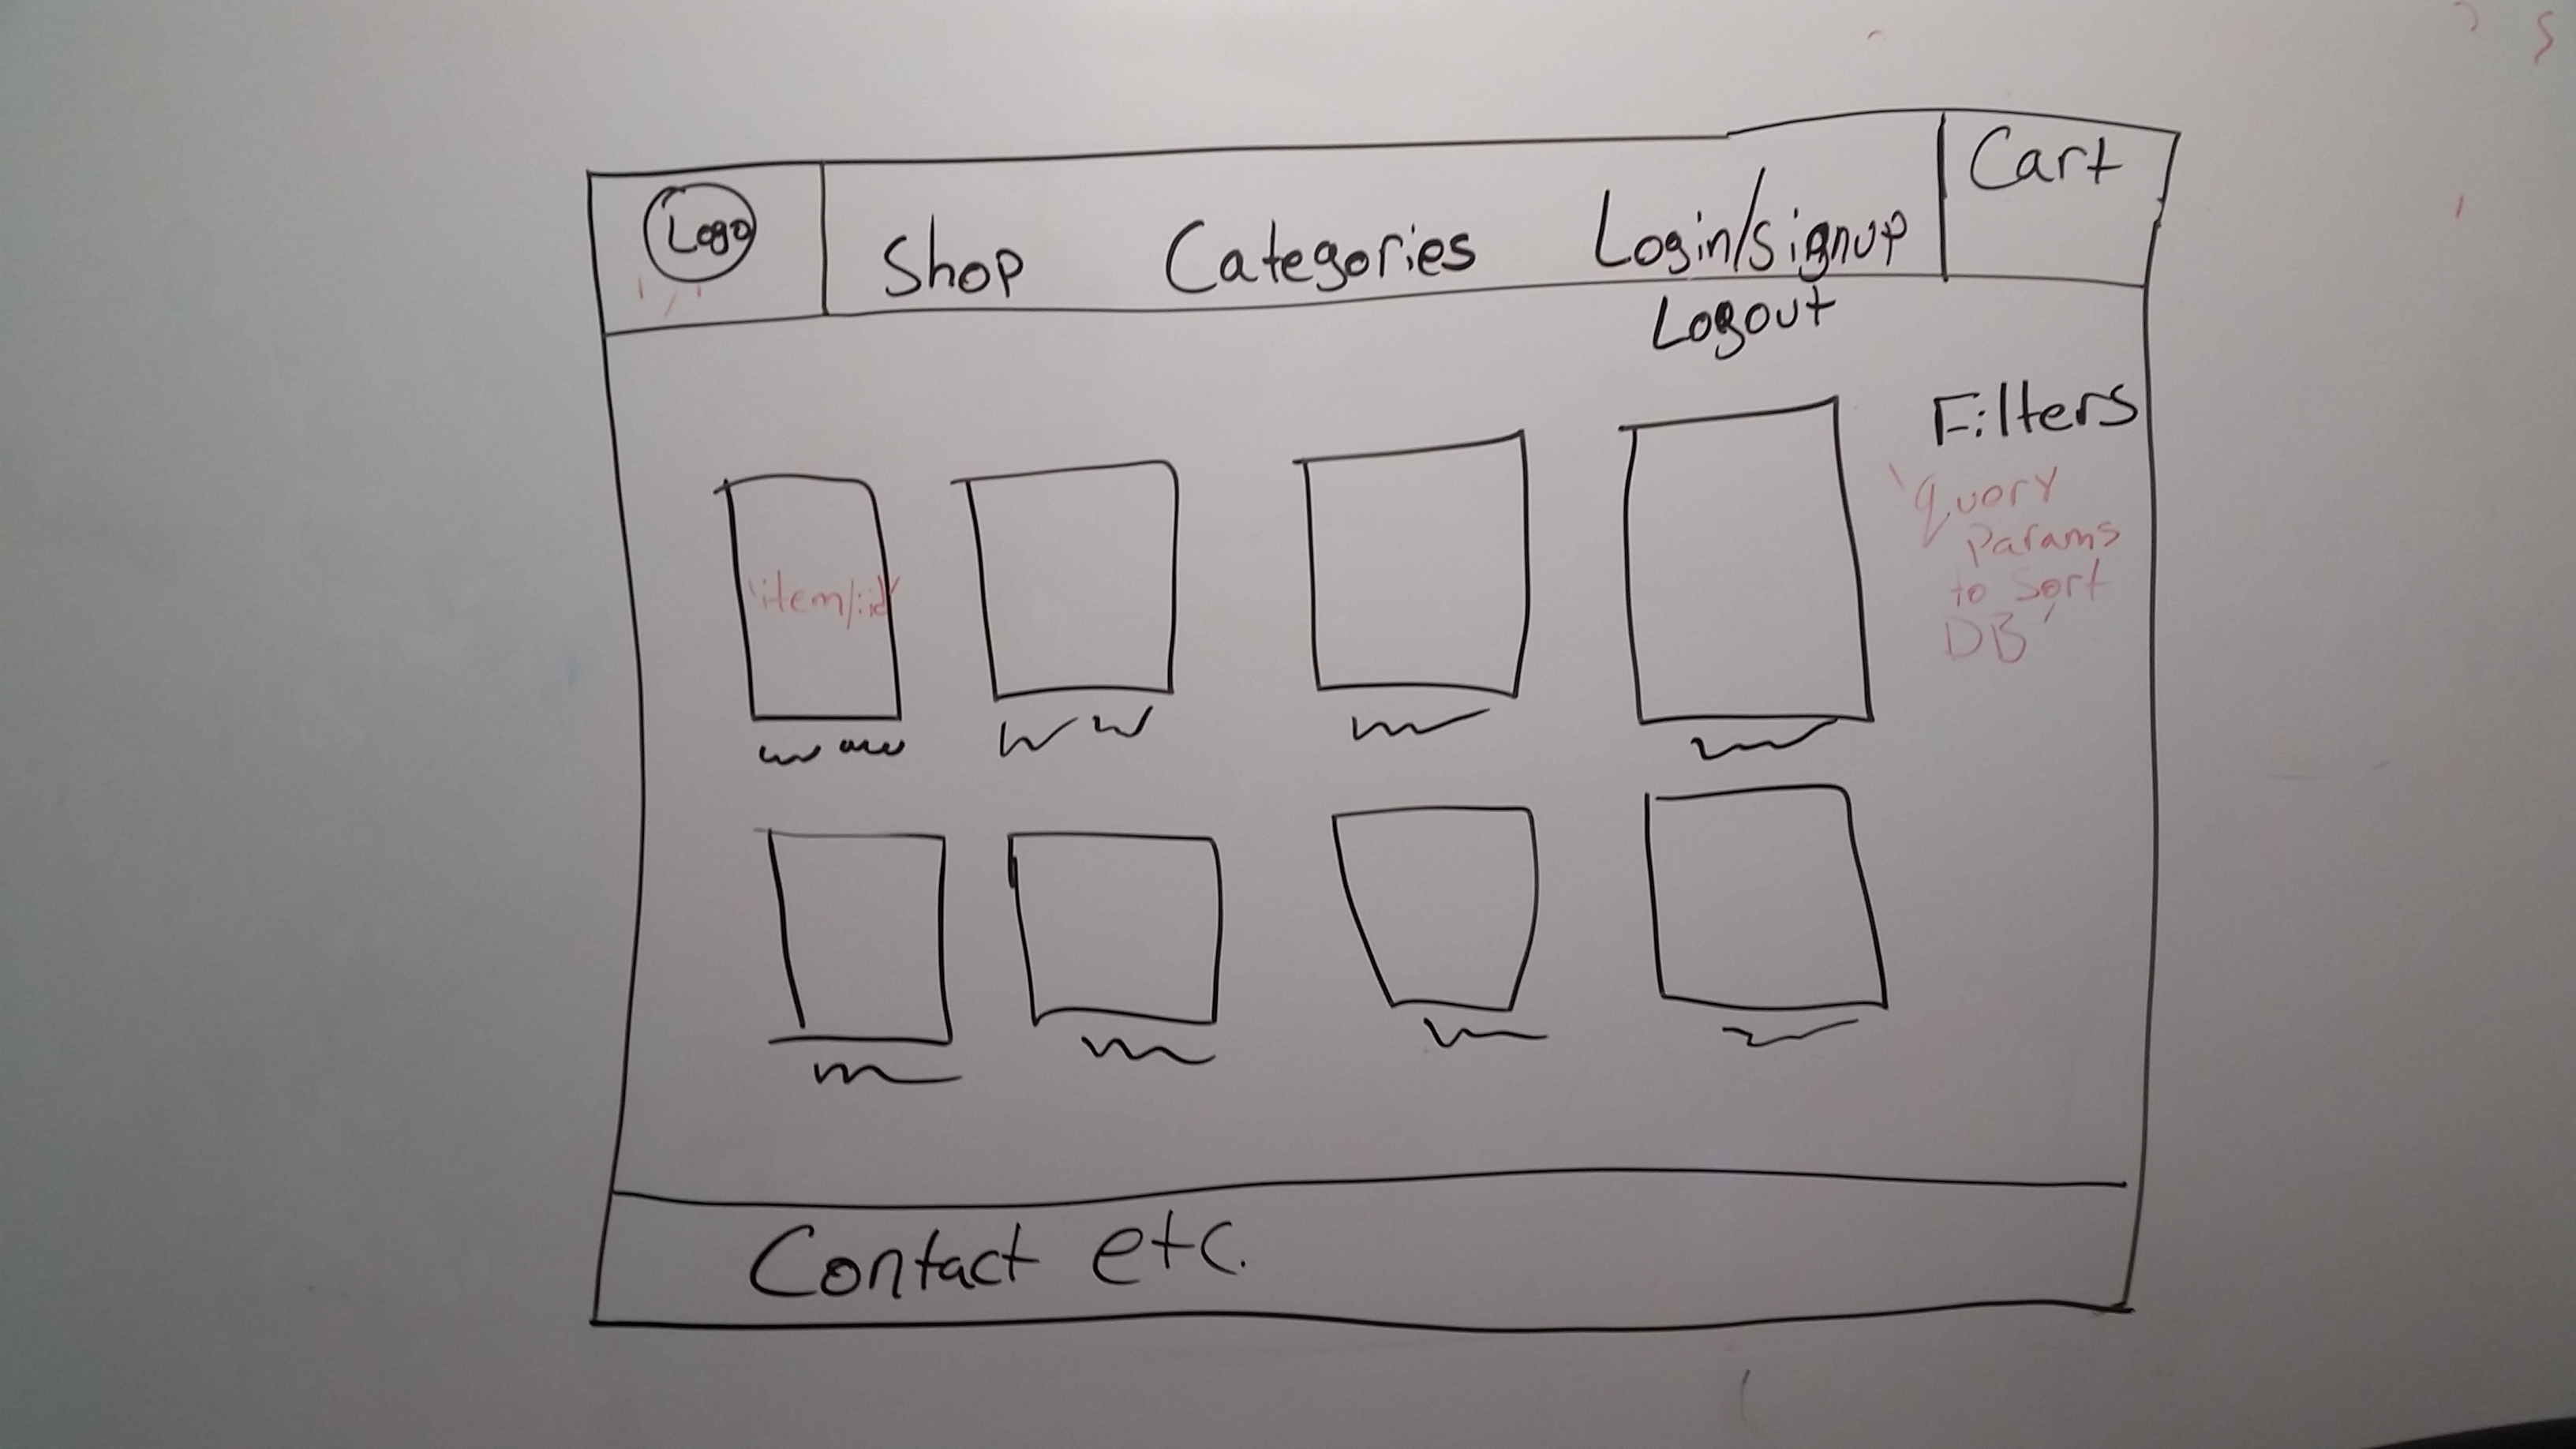 Logo
'/'
Shop Categories Login/signup
Cart
Logout
Filters
'query
Params
to Sort
DB'
'item/:id'
Contact etc.